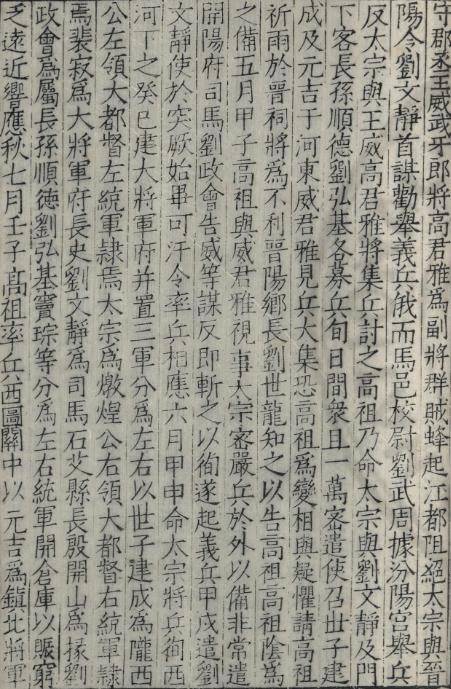 守郡丞王威武牙郎將高君雅為副將群賊蜂起江都阻絕太宗與晉
陽令劉文靜首謀勸舉義兵俄而馬邑校尉劉武周據汾陽宮舉兵
反太宗與王威高君雅將集兵討之高祖乃命太宗與劉文靜及門
下客長孫順德劉弘基各募兵旬日間衆且一萬密遣使召世子建
成及元吉于河東威君雅見兵大集恐高祖為變相與疑懼請高祖
祈雨於晉祠將為不利晉陽鄉長劉世龍知之以告高祖高祖陰為
之備五月甲子高祖與威君雅視事太宗密嚴兵於外以備非常遣
開陽府司馬劉政會告威等謀反即斬之以徇遂起義兵甲戌遣劉
文靜使於突厥始畢可汗令率兵相應六月甲申命太宗將兵徇西
河下之癸巳建大將軍府并置三軍分為左右以世子建成為隴西
公左領大都督左統軍隸焉太宗為燉煌公右領大都督右統軍隸
焉裴寂為大將軍府長史劉文靜為司馬石艾縣長殷開山為掾劉
政會為屬長孫順德劉弘基竇琮等分為左右統軍開倉庫以賑窮
乏遠近響應秋七月壬子高祖率兵西圖關中以元吉為鎮北將軍